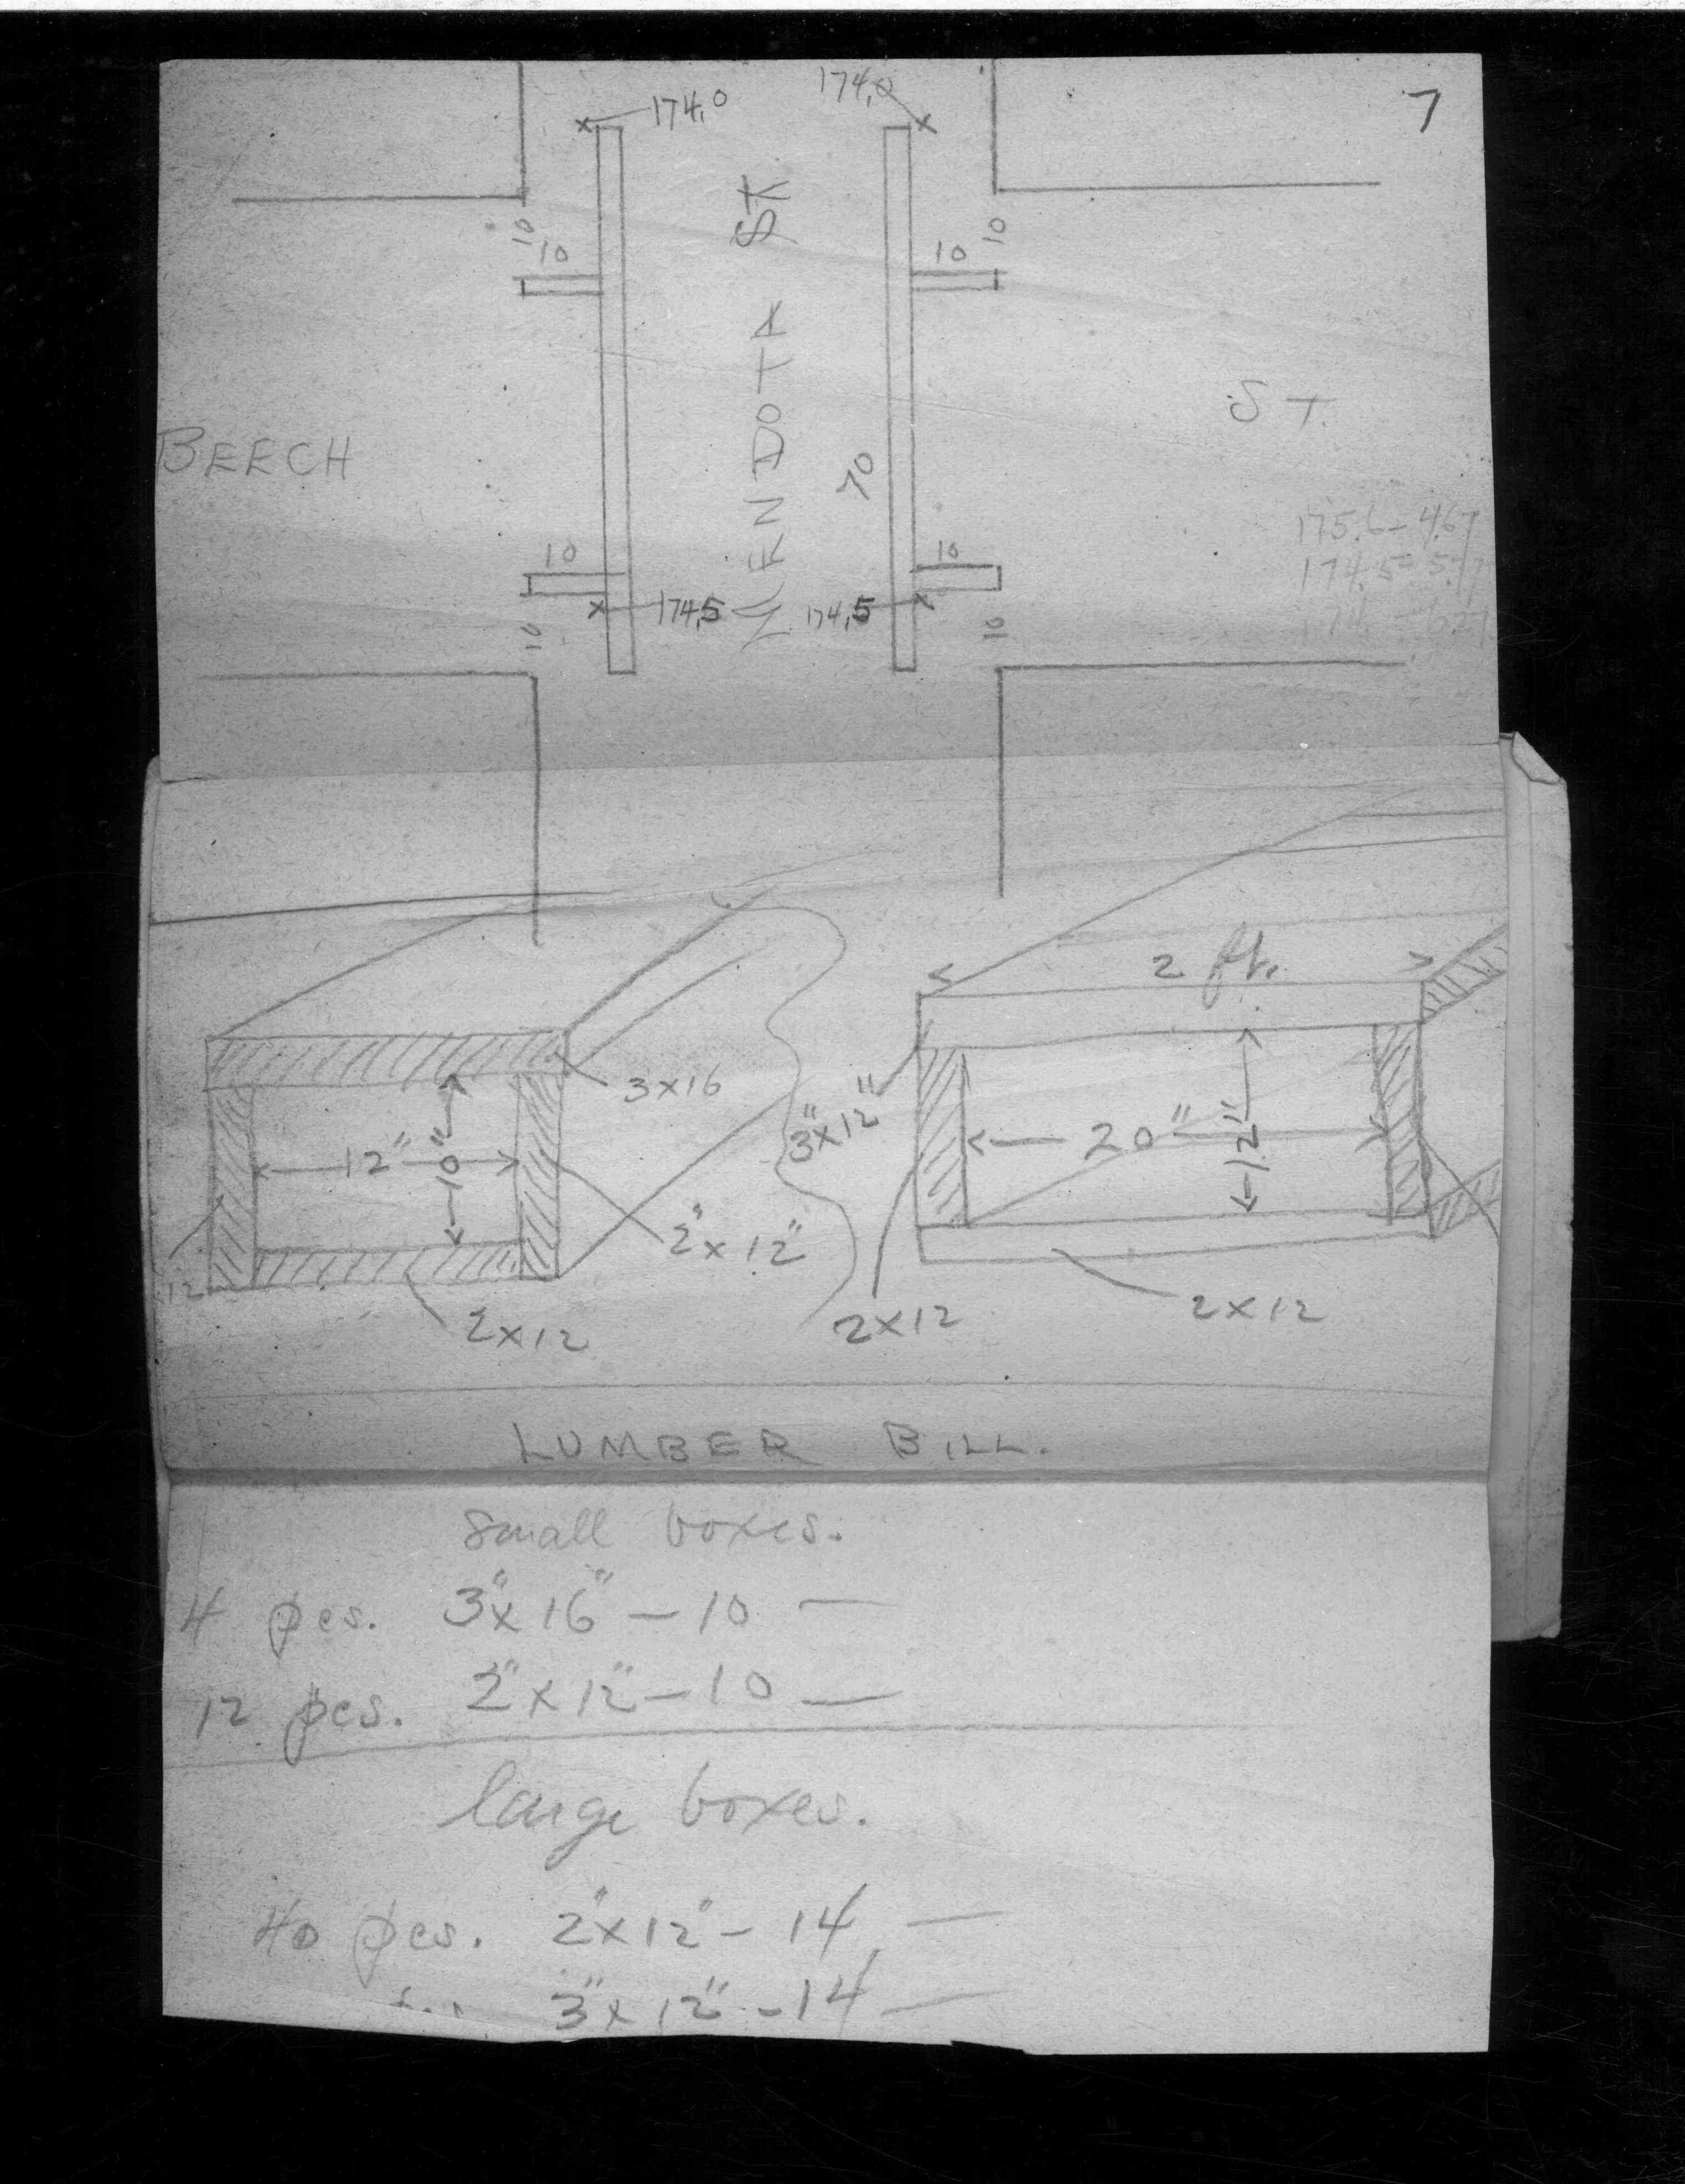 7
174.0 174.0
ST
10 10
10 10
MENDOTA
BEECH
ST.
70
175.6 - 4.67
174.5 = 5.77
174. - 6.27
10 10
174.5 174.5
10 10
2 ft.
3x16
12" 10"
3"x12"
20" 12"
2"x12"
12
2x12
2x12
2x12
LUMBER BILL.
Small boxes.
4 pcs. 3"x16" - 10 —
12 pcs. 2"x12" - 10 —
large boxes.
40 pcs. 2"x12" - 14 —
3"x12" - 14 —